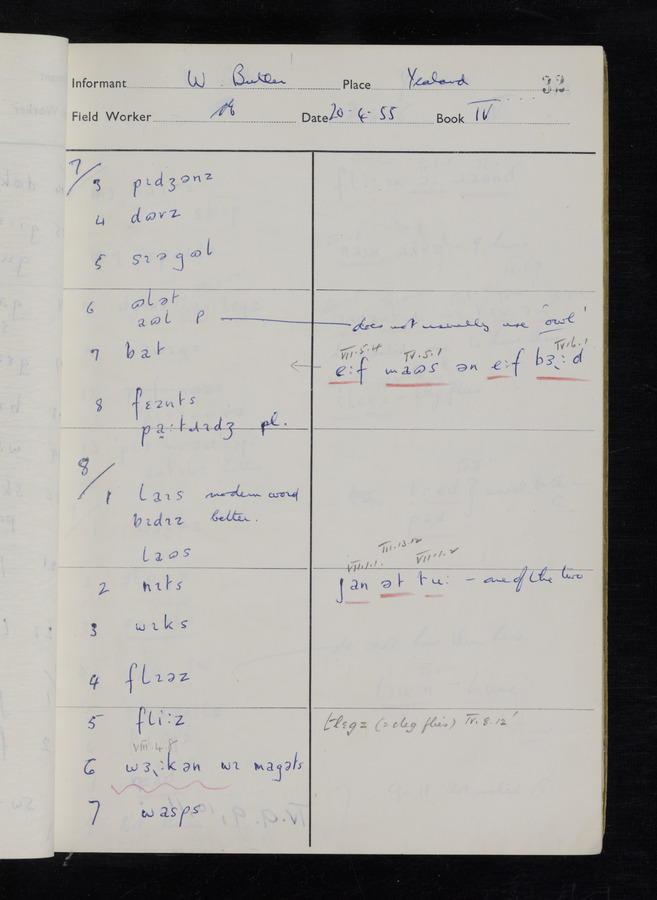 Informant W. Butler Place Yealand 32
Field Worker Date 20-4-55 Book IV
7/ 3 pɪdʒənz
4 dɷvz
5 sɪəgɷl
6 ɷlət
aɷl p — does not usually use 'owl'
VII.5.4 IV.5.1 IV.6.1
7 bat ← e:f maɷs ən e:f bɜ:d
8 fɛznts
pa:tɹɪdʒ pl.
8/ 1 laɪs modern word
bɪdɪz better.
laɷs
VII.1.1. III.13.12 VII.1.2
2 nɪts jan ət tu: - one of the two
3 wɪks
4 flɪəz
5 fli:z tlegz (= cleg flies) IV.8.12
VIII.4.8
6 wɜ:kən wɪ magəts
7 wasps